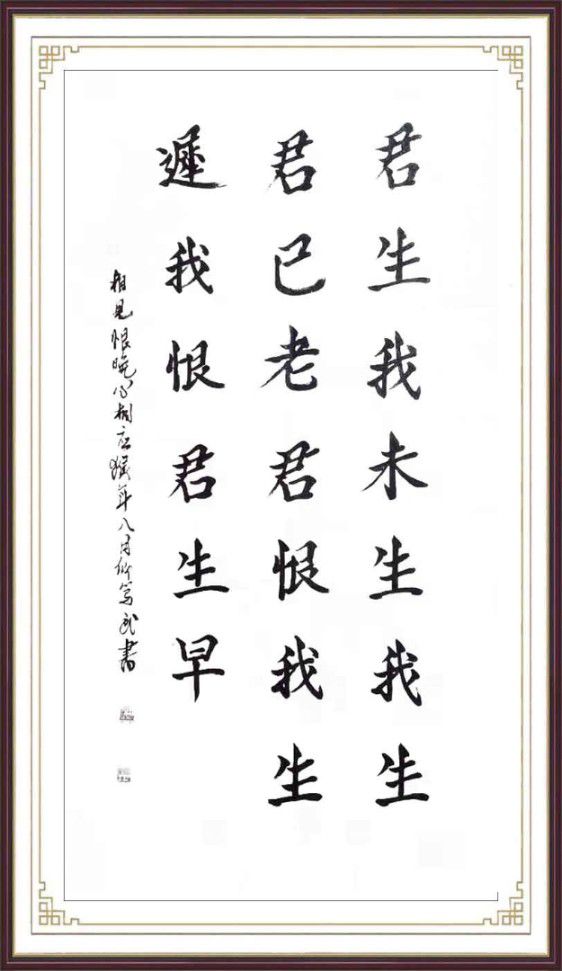 君生我未生我生
君已老君恨我生
遲我恨君生早
相見恨晚心相應猴年八月竹篱武書